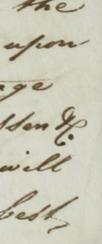 the
upon
ge
ssen &c.
will
best,